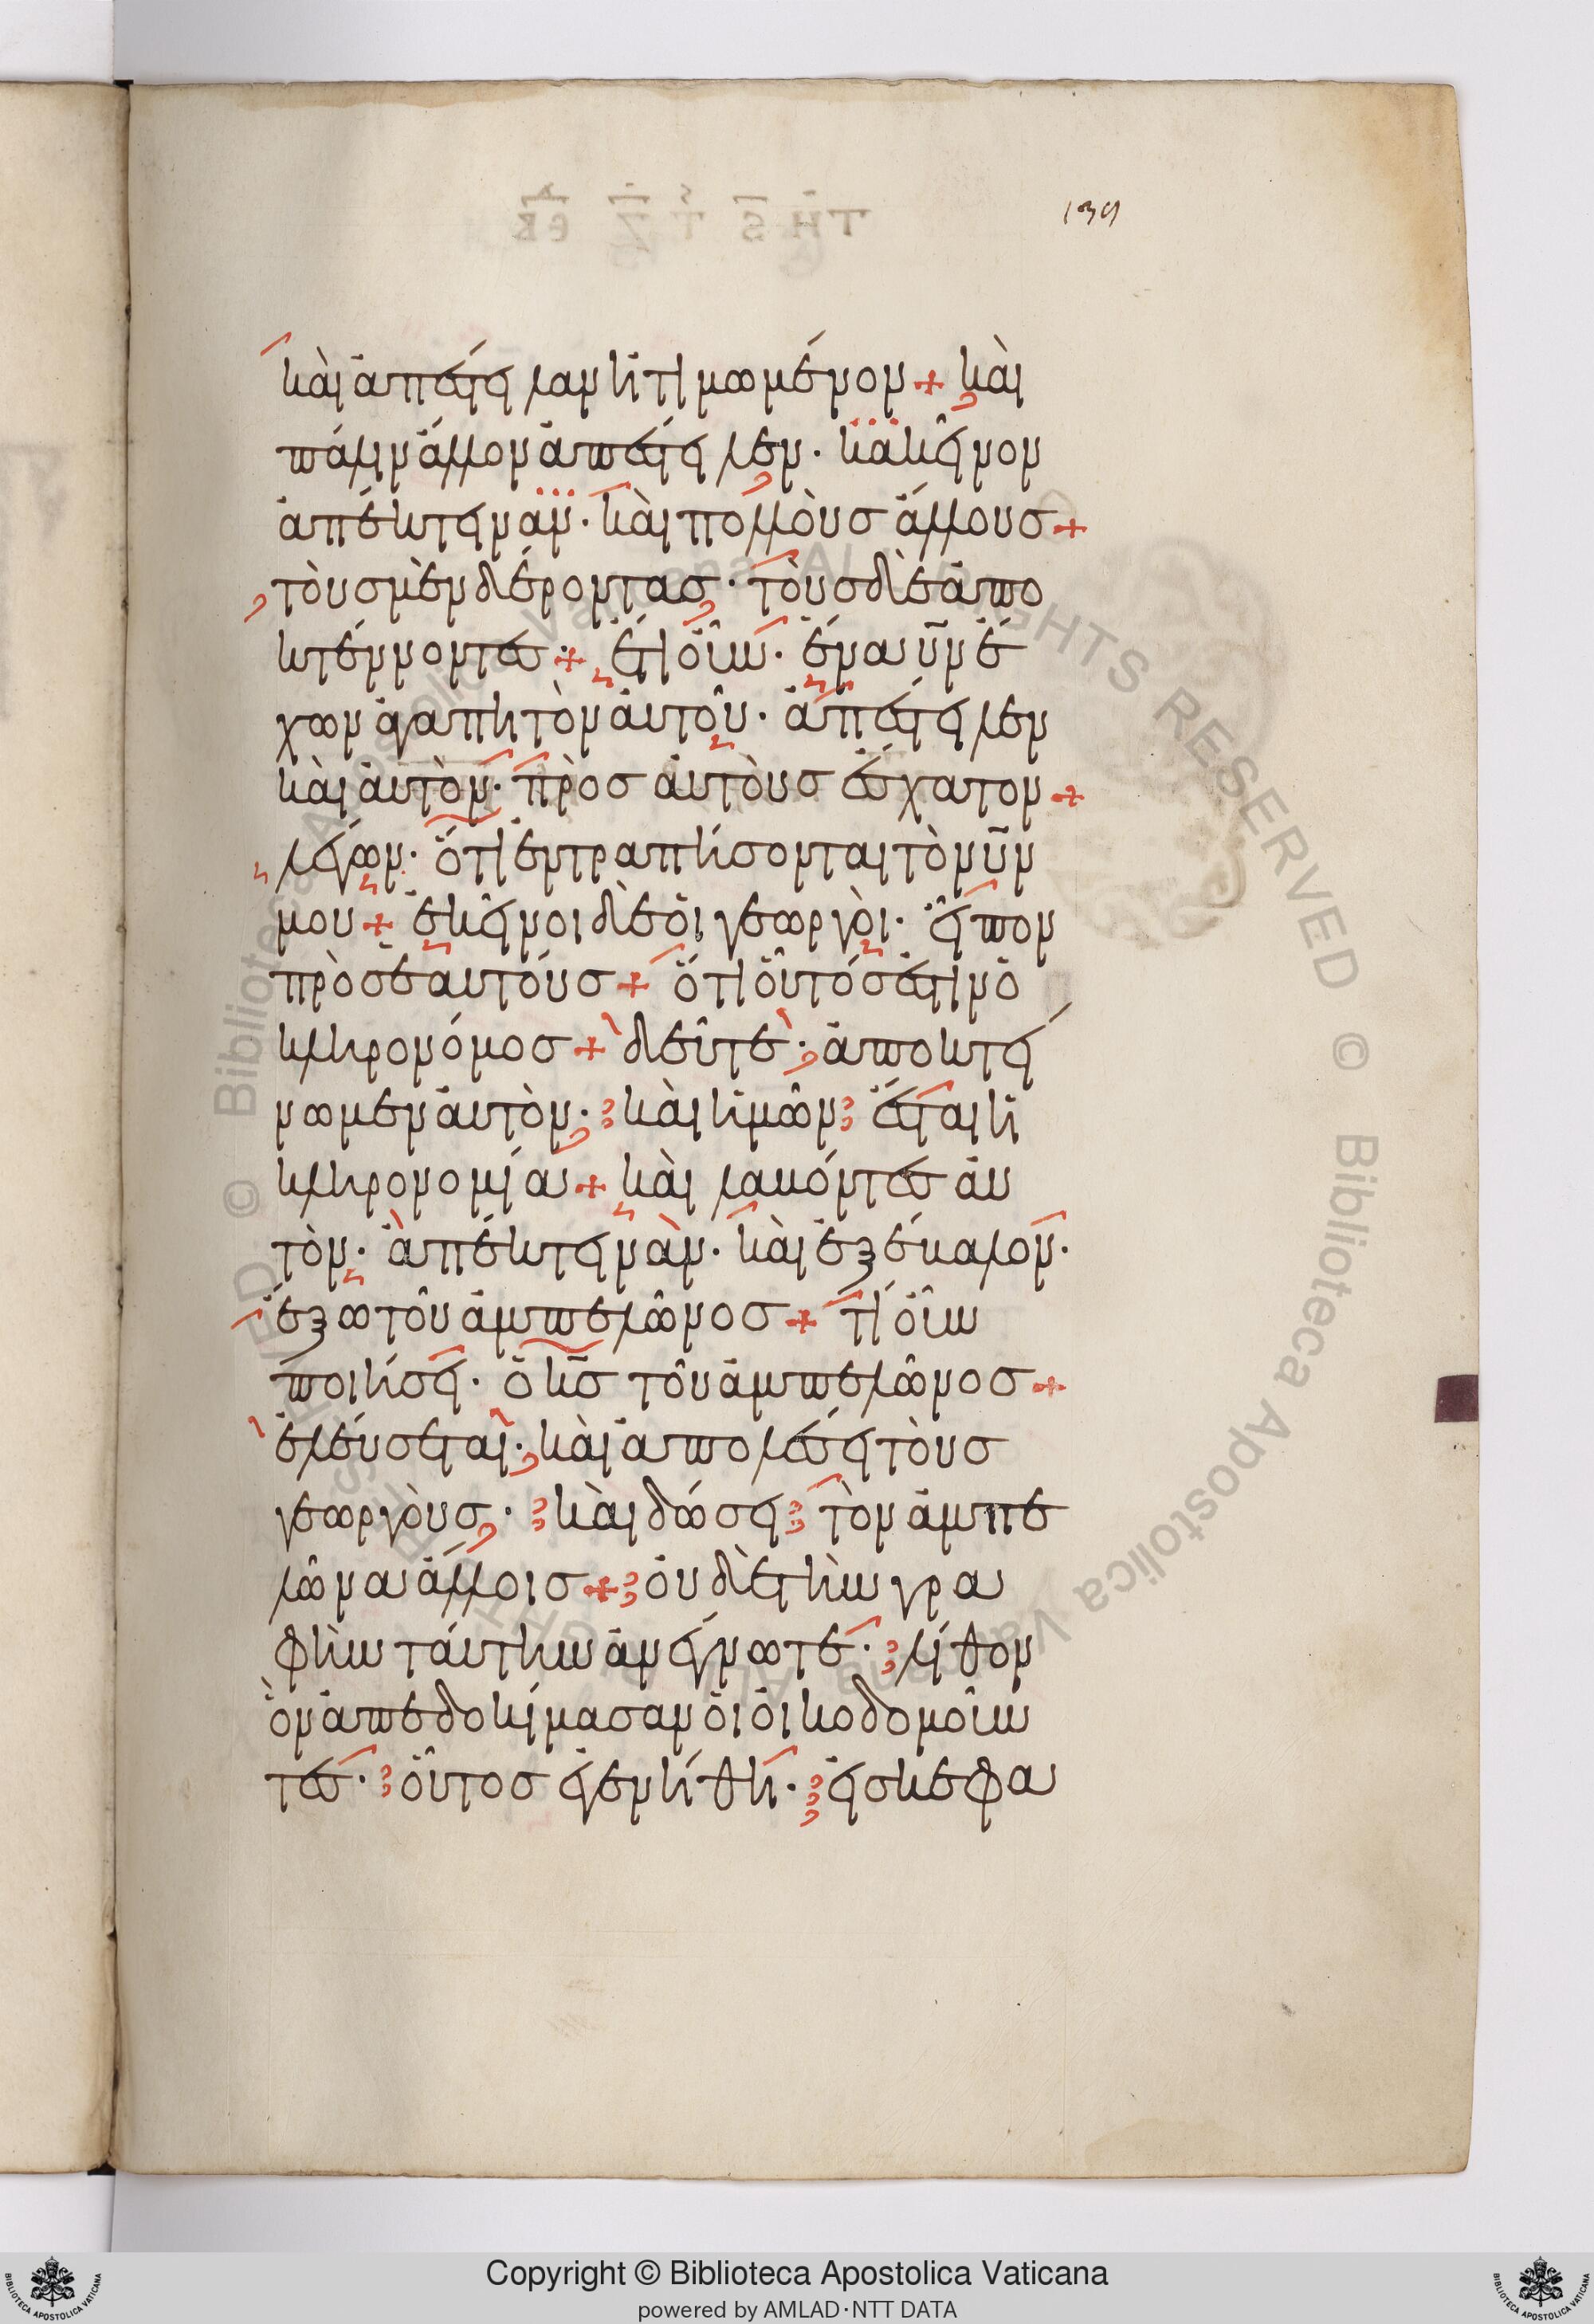 139
καὶ ἀπέστειλαν ἠτιμωμένον + καὶ
πάλιν ἄλλον ἀπέστειλεν· κἀκεῖνον
ἀπέκτειναν· καὶ πολλοὺσ ἄλλουσ +
τοὺσ μὲν δέροντασ· τοὺσ δὲ ἀπο
κτέννοντεσ· + ἔτι οὖν· ἕνα ὑν ἔ
χων ἀγαπητὸν ἀυτοῦ· ἀπέστειλεν
καὶ ἀυτὸν· πρὸσ ἀυτοὺσ ἔσχατον +
λέγων· ὅτι ἐντραπήσονται τὸν ὑν
μου + ἐκεῖνοι δὲ οἱ γεωργὸι· εἶπον
πρὸσ ἑαυτούσ + ὅτι οὗτόσ ἐστιν ὁ
κληρονόμοσ + δεῦτε· ἀποκτεί
νωμεν ἀυτὸν· καὶ ἡμῶν ἔσται ἡ
κληρονομία + καὶ λαβόντεσ ἀυ
τὸν· ἀπέκτειναν· καὶ ἐξέβαλον·
ἔξω τοῦ ἀμπελῶνοσ + τί οὖν
ποιήσει· ὁ κσ τοῦ ἀμπελῶνοσ +
ἐλέυσεται· καὶ ἀπολέσει τοὺσ
γεωργὸυσ· καὶ δώσει τὸν ἀμπε
λῶνα ἄλλοισ + ὀυδὲ τὴν γρα
φὴν τάυτην ἀνέγνωτε· λίθον
ὃν ἀπεδοκίμασαν ὁι ὀικοδομοῦν
τεσ· οὗτοσ ἐγενήθη· ἐισ κεφα
Copyright © Biblioteca Apostolica Vaticana
powered by AMLAD·NTT DATA